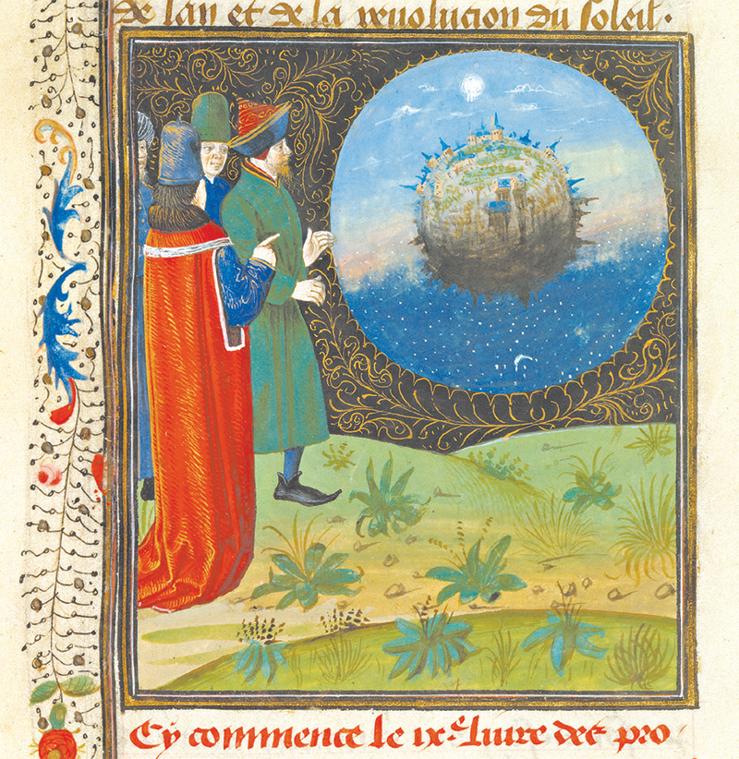 de lan et de la reuolucion du soleil.
Cy commence le ix.e liure des pro